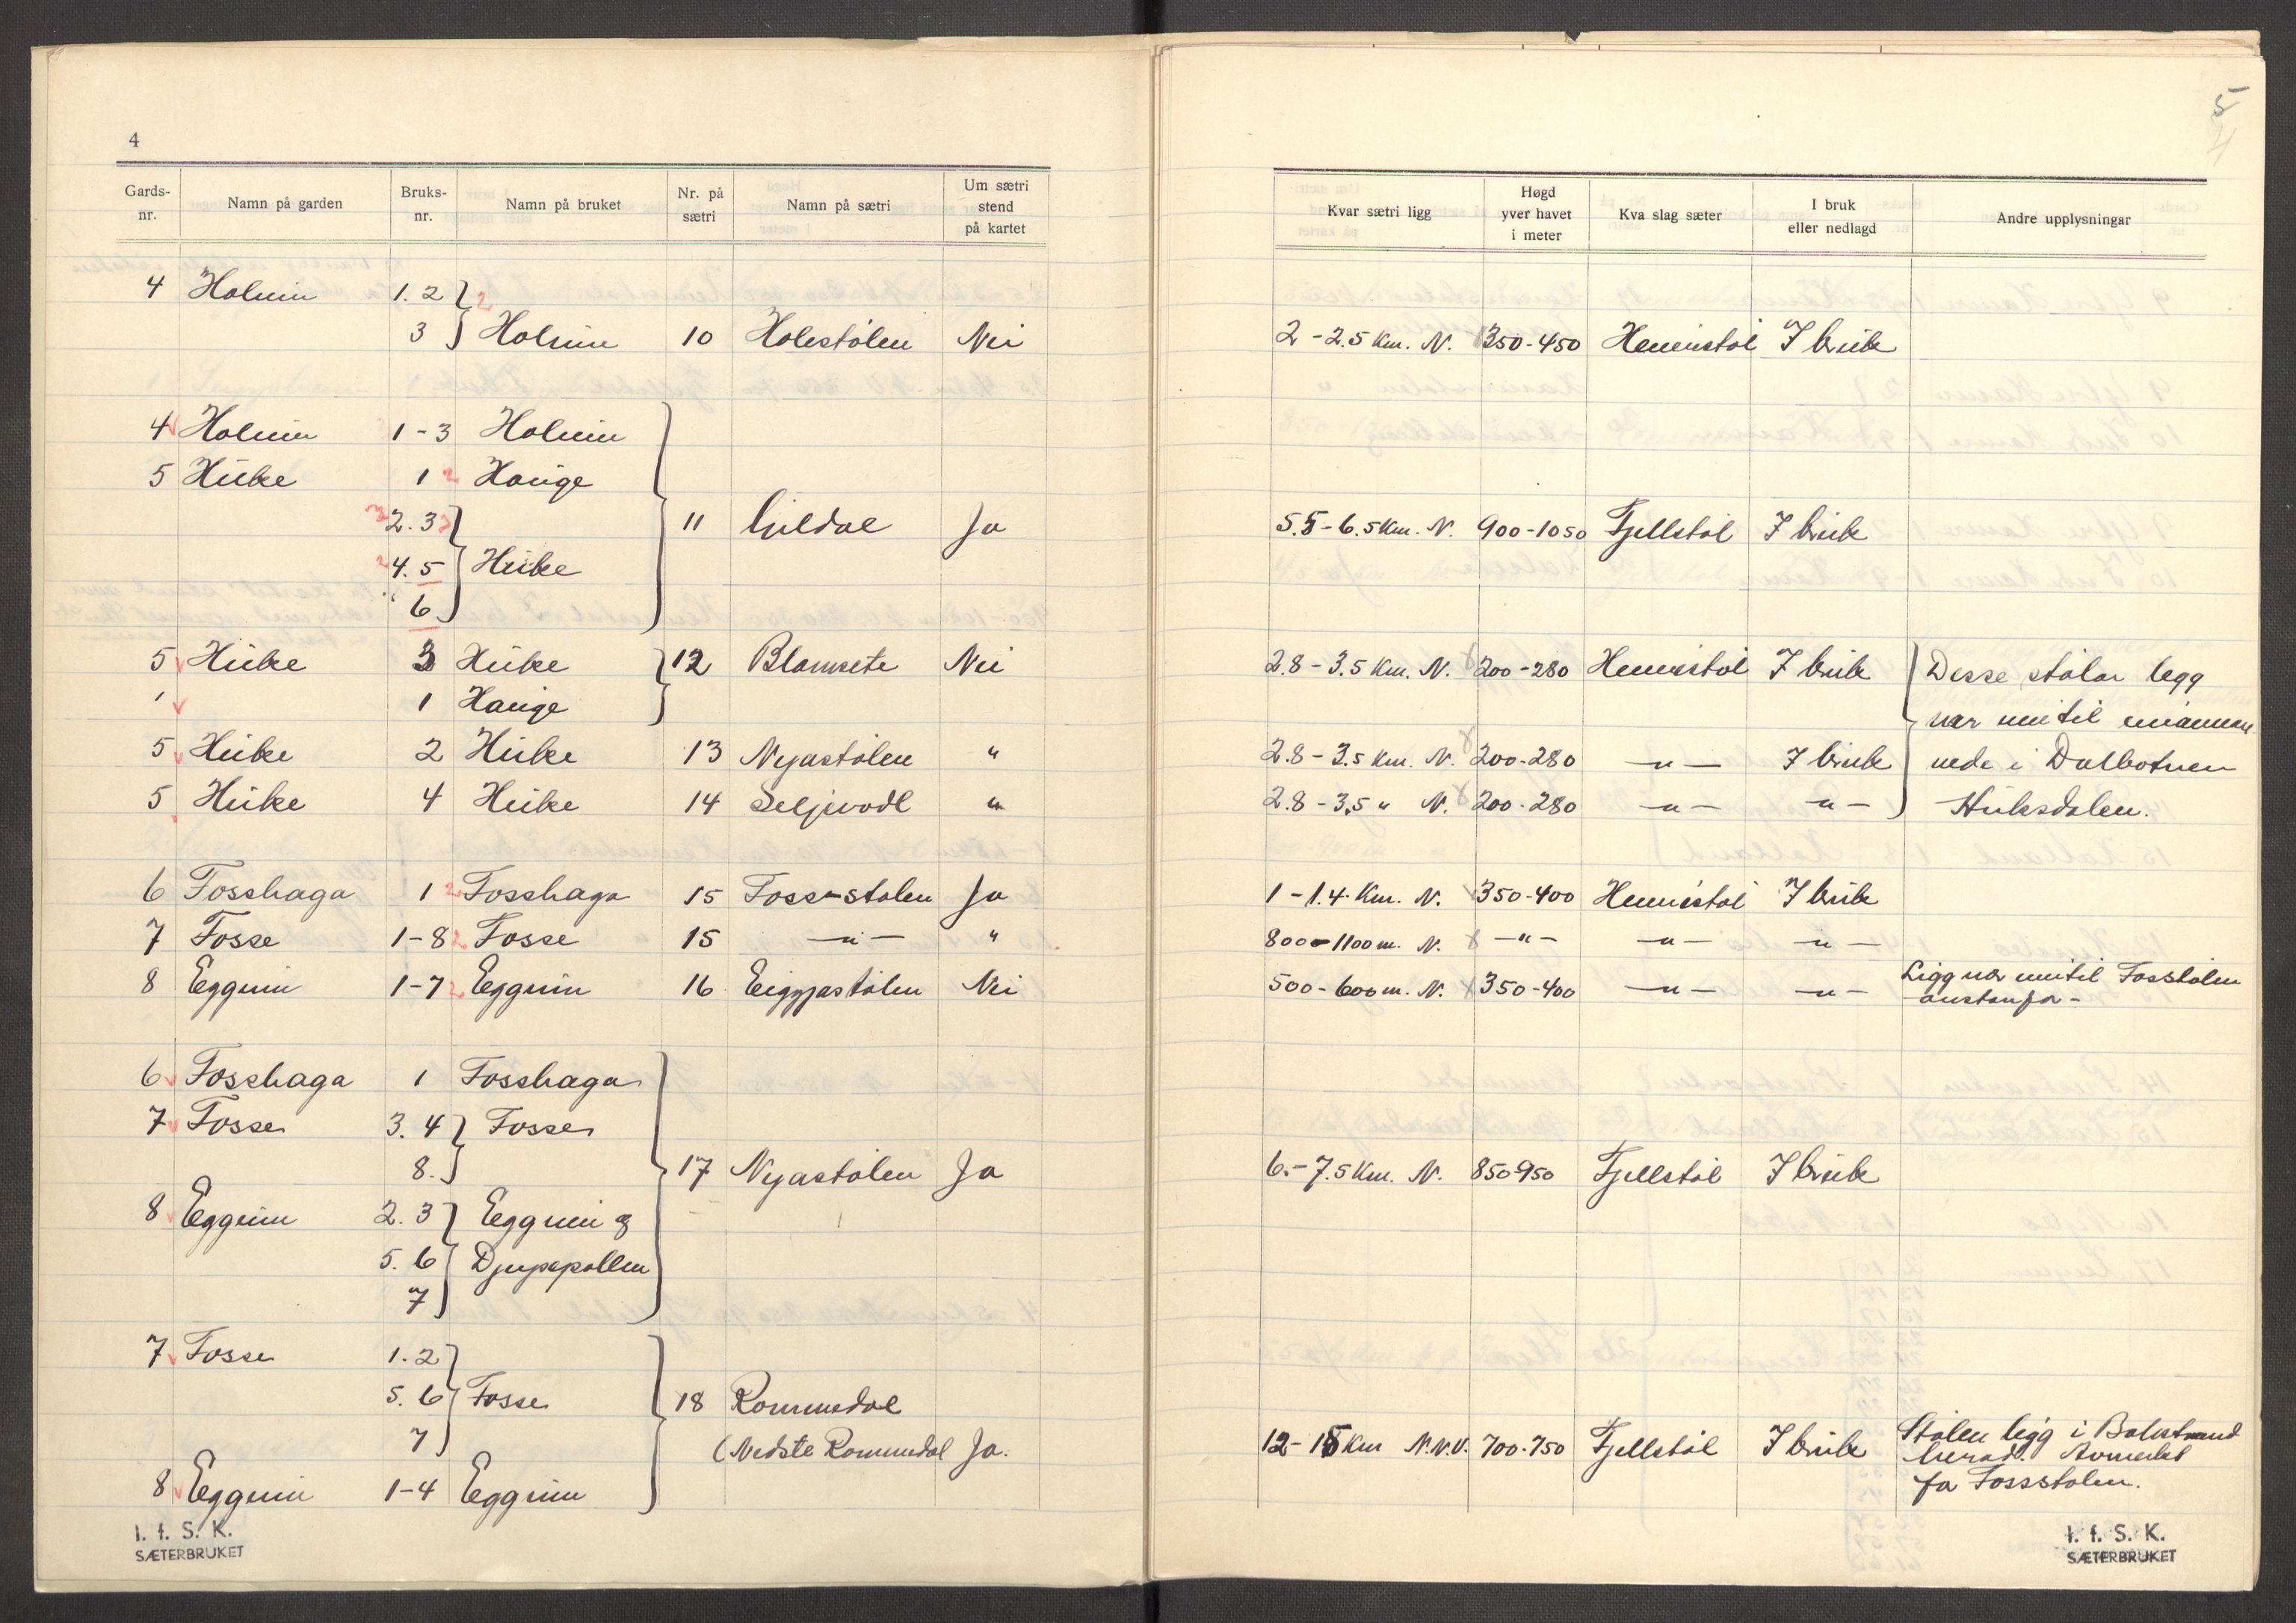 4
5
4
Gards-nr. | Namn på garden | Bruks-nr. | Namn på bruket | Nr. på sætri | Namn på sætri | Um sætri stend på kartet | Kvar sætri ligg | Høgd yver havet i meter | Kva slag sæter | I bruk eller nedlagd | Andre upplysningar
4 Holum 1. 2
3 Holum 10 Holestølen Nei 2 - 2.5 Km. N. 350-450 Heimstøl I bruk
4 Holum 1-3 Holum
5 Huke 1 Hauge
2. 3 11 Gildal Ja 5.5 - 6.5 Km. N. 900-1050 Fjellstøl I bruk
4. 5 Huke
6
5 Huke 3 Huke 12 Blamsete Nei 2.8 - 3.5 Km. N. 200-280 Heimstøl I bruk Desse stølar legg
1 Hauge nær
5 Huke 2 Huke 13 Nyastølen " 2.8 - 3.5 Km. N. 200-280 -"- I bruk nede i Dalbotnen
5 Huke 4 Huke 14 Seljevodl " 2.8 - 3.5 " N. 200-280 -"- -"- Huksdalen.
6 Fosshaga 1 Fosshaga 15 Foss-stølen Ja 1 - 1.4 Km. N. 350-400 Heimstøl I bruk
7 Fosse 1-8 Fosse 15 -"- " 800-1100 m. N. -"- -"- -"-
8 Eggum 1-7 Eggum 16 Eiggjastølen Nei 500-600 m. N. 350-400 -"- -"- Ligg nær inntil Fosstølen
austanfor -
6 Fosshaga 1 Fosshaga
7 Fosse 3. 4 Fosse
8. 17 Nyastølen Ja 6.-7.5 Km. N. 850-950 Fjellstøl I bruk
8 Eggum 2. 3 Eggum og
5. 6 Djupepollen
7
7 Fosse 1. 2
5. 6 Fosse 18 Rommedal
7 (Nedste Rommedal Ja. 12-15 Km N.N.V. 700-750 Fjellstøl I bruk Stølen ligg i Balestrand
8 Eggum 1-4 Eggum herad.
fra Fossstølen.
I. f. S. K.
SÆTERBRUKET
I. f. S. K.
SÆTERBRUKET